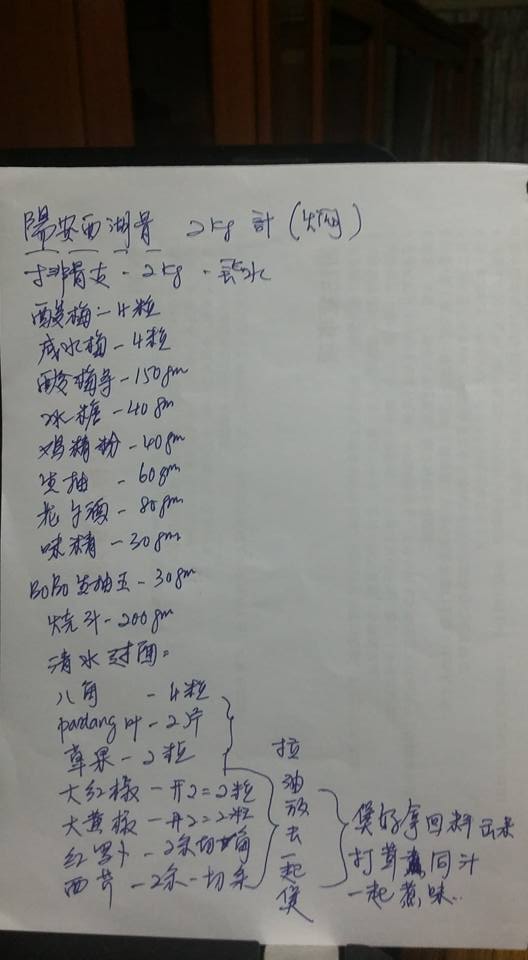 陽安西湖骨 2kg 計(焗)
排骨支 - 2kg - 氽水
酸梅 - 4粒
咸水梅 - 4粒
酸梅羔 - 150gm
冰糖 - 40gm
鸡精粉 - 40gm
生抽 - 60gm
花〇酒 - 80gm
味精 - 30gm
BOBO生抽王 - 30gm
烧汁 - 200gm
清水过面。
八角 - 4粒
pandang叶 - 2片
草果 - 2粒
大红椒 - 开2=2粒
大黄椒 - 开2=2粒
红萝卜 - 2条切角
西芹 - 2条 - 切条
拉油放去一起煲
煲好拿回料出来
打茸同汁
一起煮味..